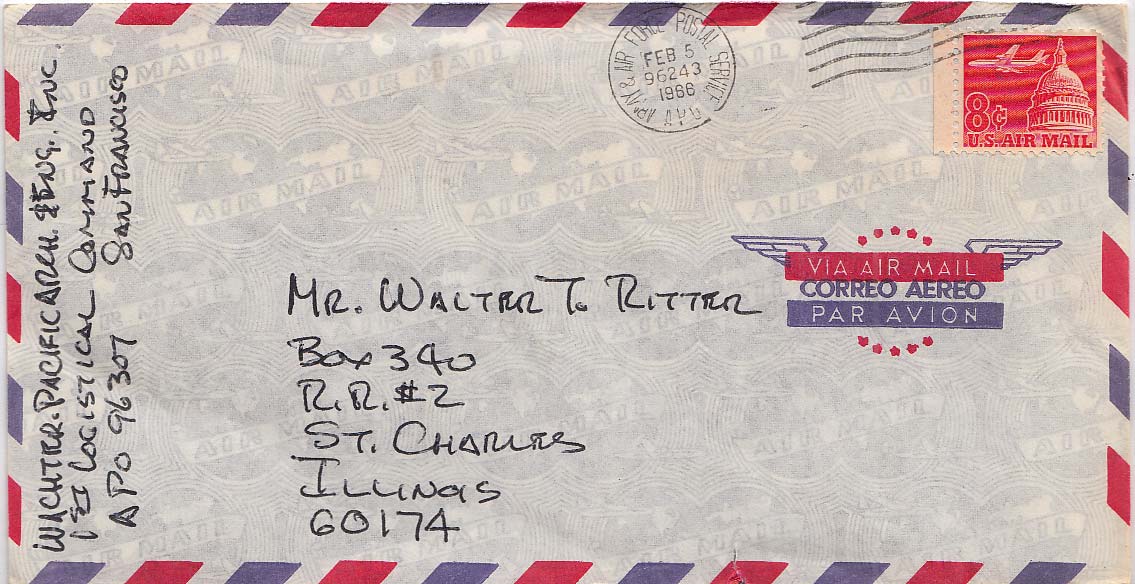 WACHTER-PACIFIC ARCH. & ENG. INC.
1ST LOGISTICAL COMMAND
APO 96307 SAN FRANCISCO
ARMY & AIR FORCE POSTAL SERVICE
FEB 5
96243
1966
APO
8¢
U.S. AIR MAIL
VIA AIR MAIL
CORREO AEREO
PAR AVION
MR. WALTER T. RITTER
BOX 340
R.R. #2
ST. CHARLES
ILLINOIS
60174
AIR MAIL